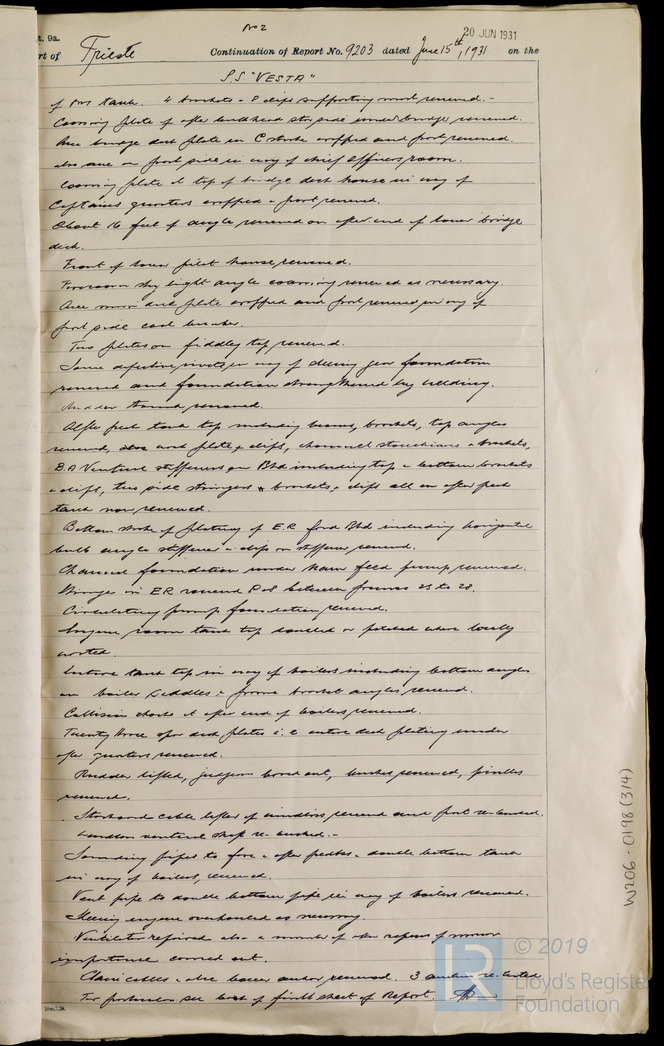 No 2
20 JUN 1931
t. 9a.
rt of Trieste Continuation of Report No. 9203 dated June 15th, 1931 on the
S.S "VESTA"
of tank. 4 brackets & 8 clips supporting renewed.-
Coaming plate of after bulkhead side under bridge renewed.
One bridge deck plate in C strake cropped and part renewed.
also one on port side in way of chief officers room.
Coaming plate at top of bridge deck house in way of
Captains quarters cropped & part renewed.
About 16 feet of angle renewed on after end of lower bridge
deck.
Front of lower pilot house renewed.
sky light angle coaming renewed as necessary.
One main deck plate cropped and part renewed in way of
port side coal bunker.
Two plates on fiddley top renewed.
Some defective rivets in way of steering gear foundation
renewed and foundation strengthened by welding.
Rudder renewed.
After peak tank top including beams, brackets, top angles
renewed, plate & clips, channel stanchions & brackets,
stiffeners on Bhd including top & bottom brackets
& clips, two side stringers & brackets, & clips all in after peak
tank now renewed.
Bottom strake of plating of E.R ford Bhd including horizontal
bulb angle stiffener & clips on stiffener renewed.
Channel foundation under main feed pump renewed.
in ER renewed P & S between frames 23 to 28.
Circulating pump foundation renewed.
Engine room tank top doubled or patched where locally
wasted.
Entire tank top in way of boilers including bottom angles
on boiler saddles & frame bracket angles renewed.
Collision chocks at after end of boilers renewed.
Twenty three deck plates i.e entire deck plating under
after quarters renewed.
Rudder lifted, gudgeons bored out, bushes renewed, pintles
renewed.
Starboard cable lifter of windlass renewed and port re-bushed.
Windlass vertical shaft re-bushed.-
Sounding pipes to fore & after peaks & double bottom tank
in way of boilers, renewed.
Vent pipe to double bottom pipe in way of boilers renewed.
Steering engine overhauled as necessary.
Ventilators repaired also a number of other repairs of minor
importance carried out.
Chain cables & also bower anchor renewed. 3 anchors re-tested
For particulars see back of first sheet of Report.
W206-0198 (3/4)
LR
© 2019
Lloyd's Register
Foundation